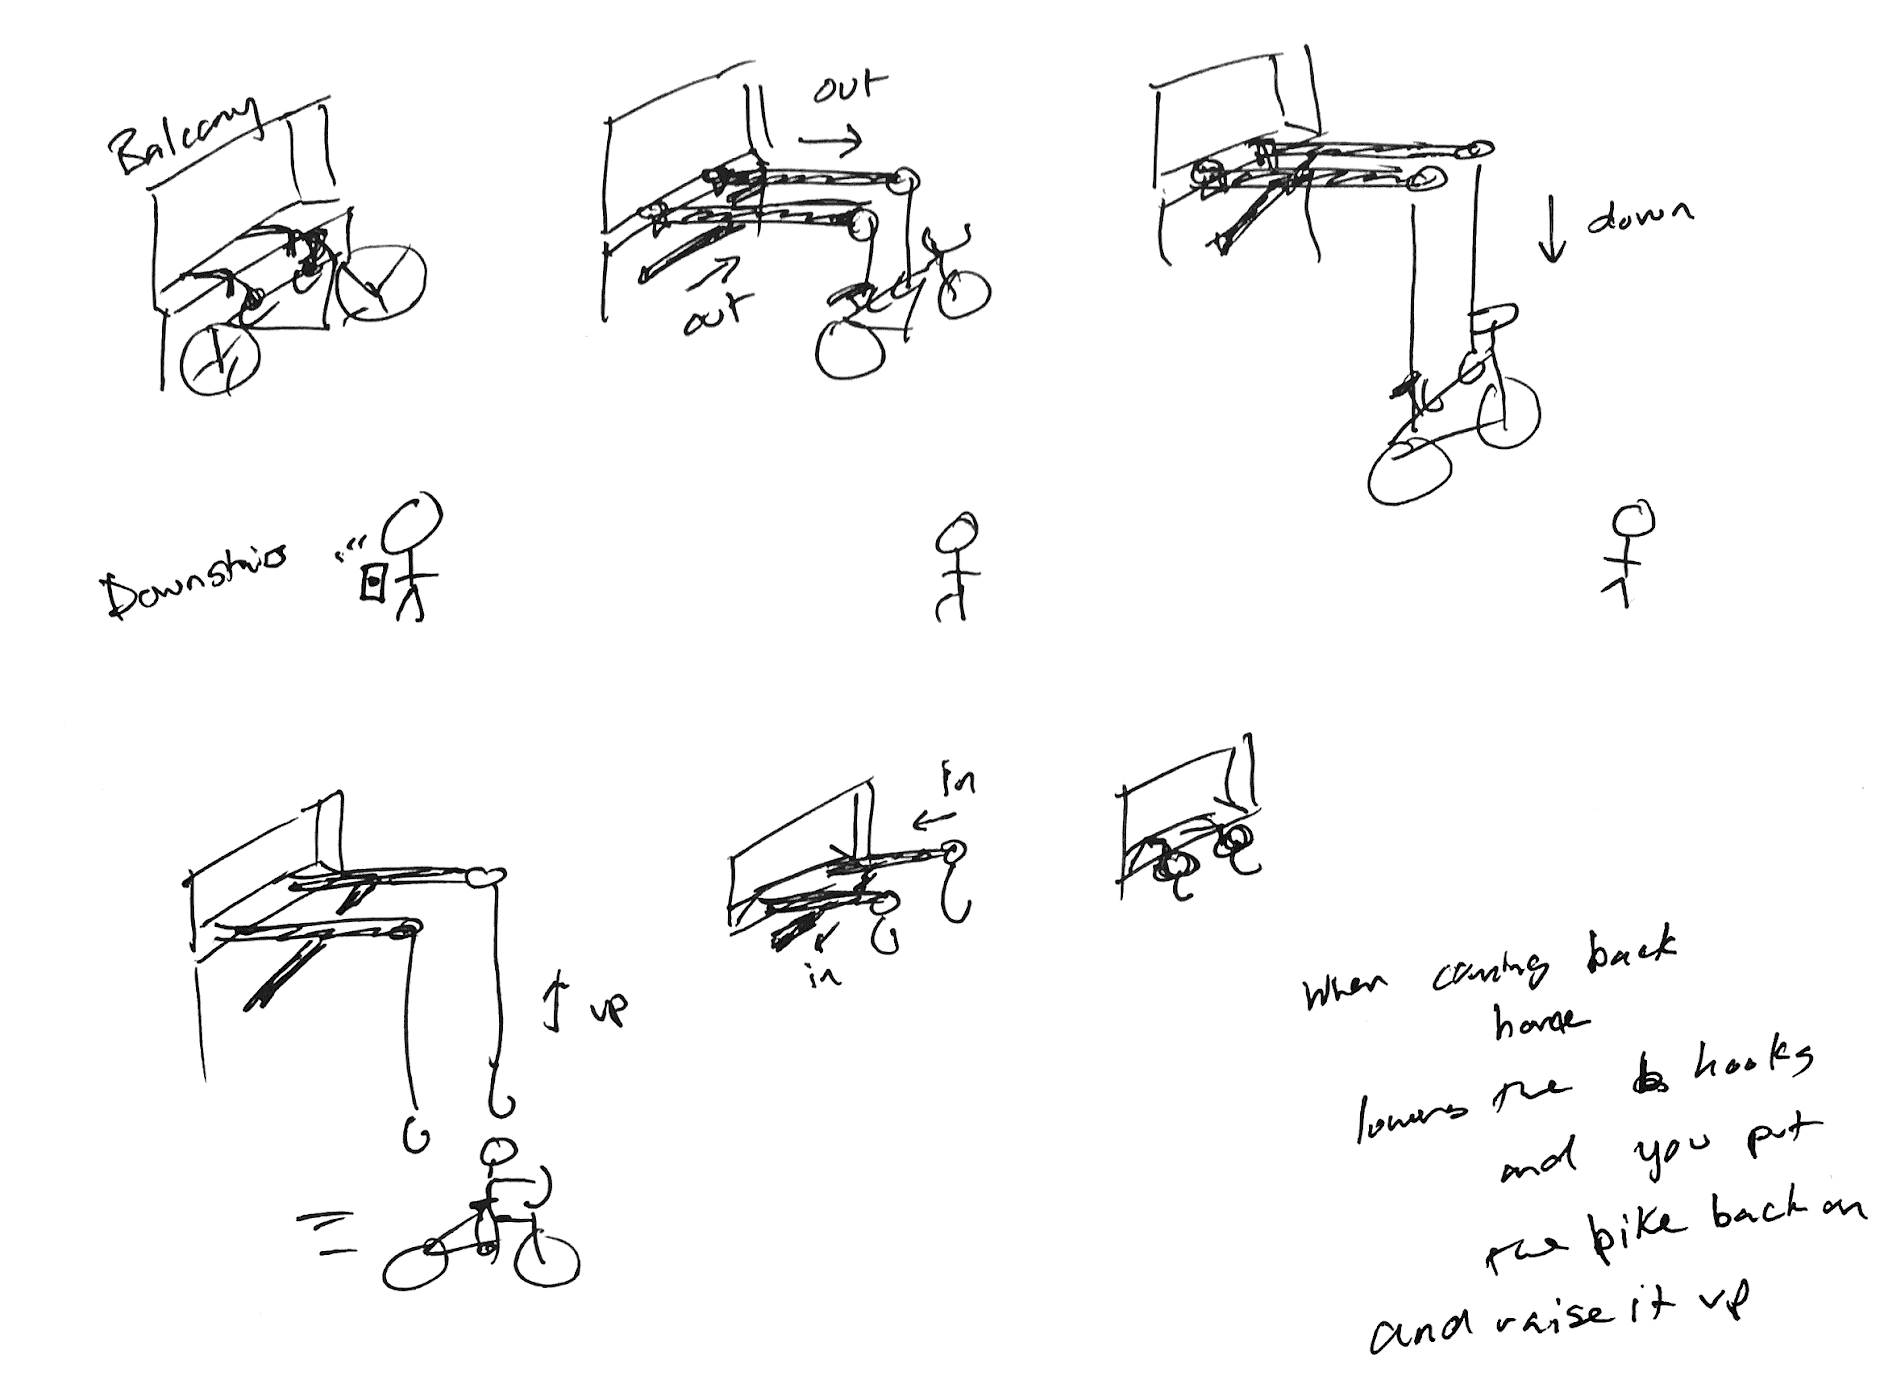 Balcony
out
out
down
Downstairs
up
in
in
When coming back
home
lowers the hooks
and you put
the bike back on
and raise it up